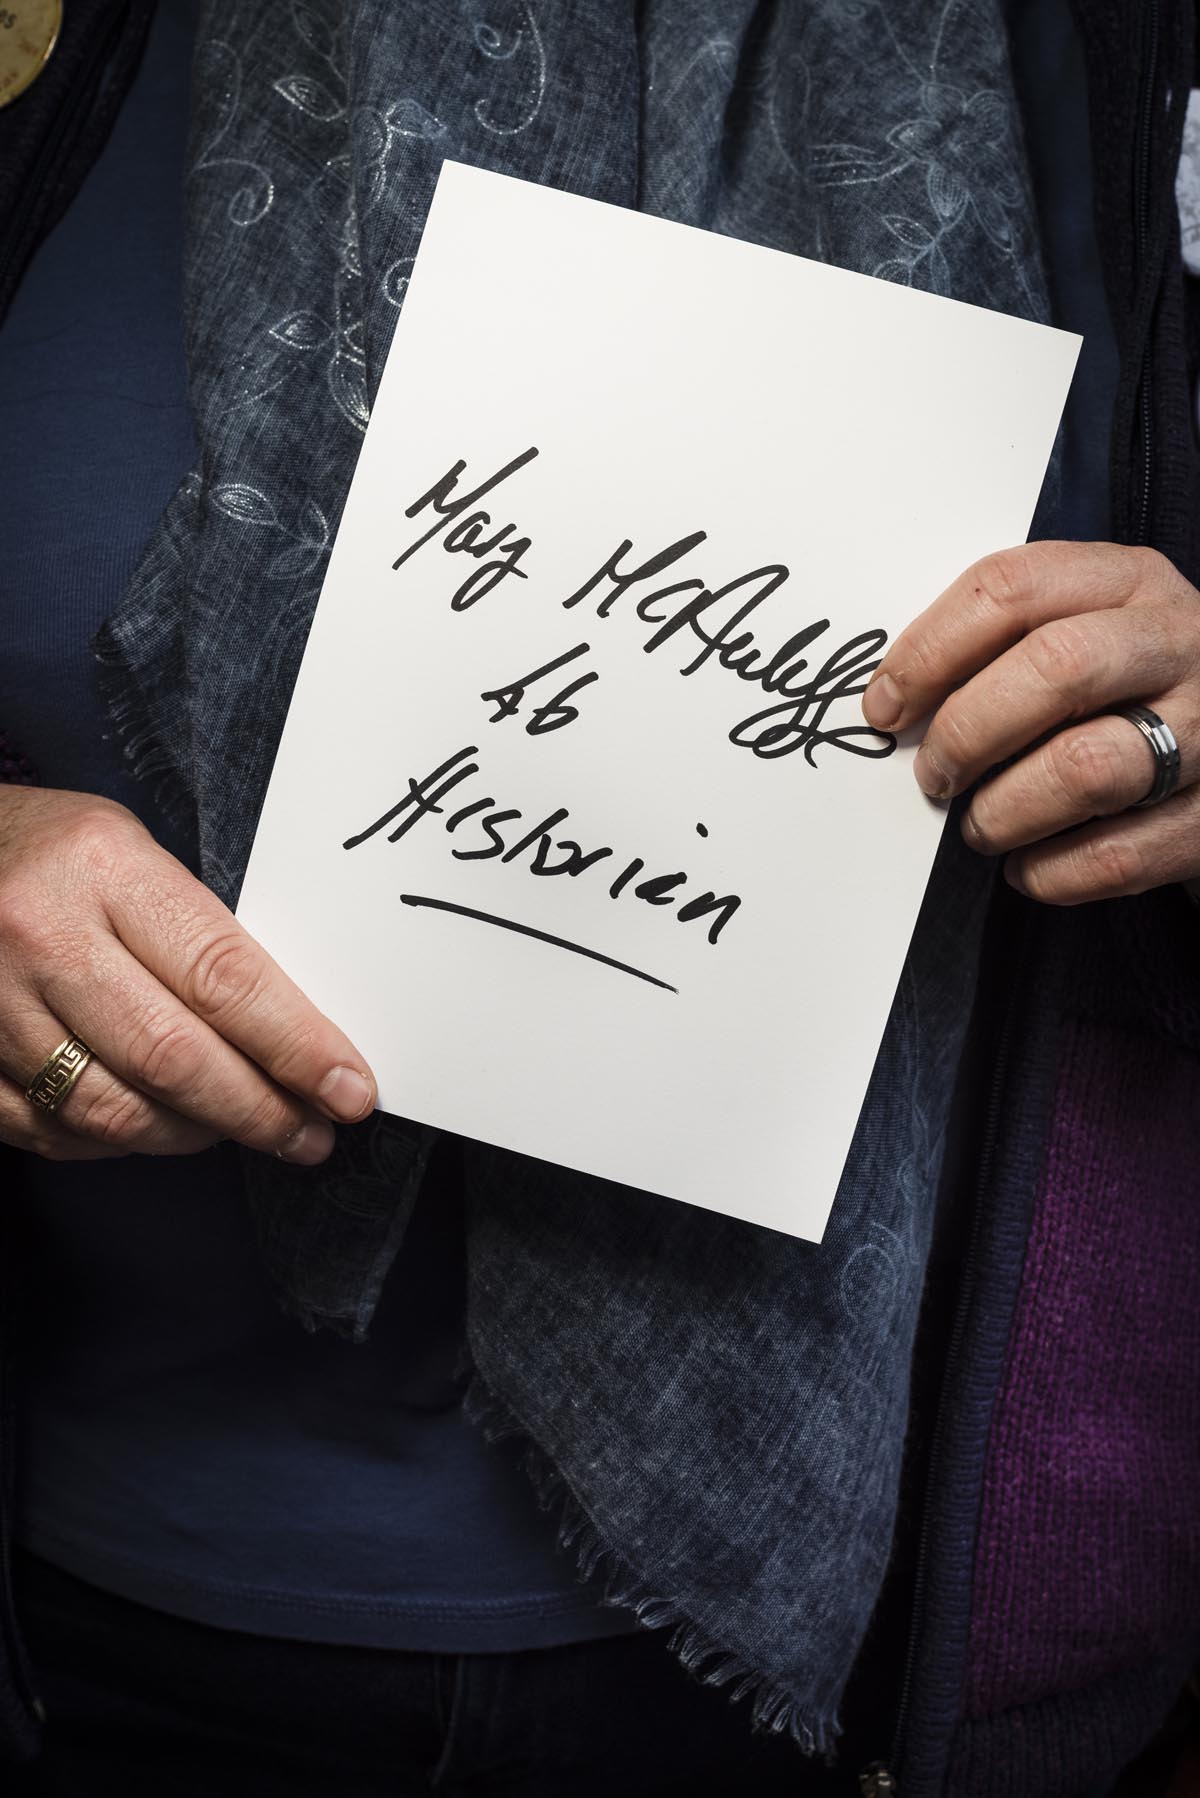 Mary McAuliffe
46
Historian